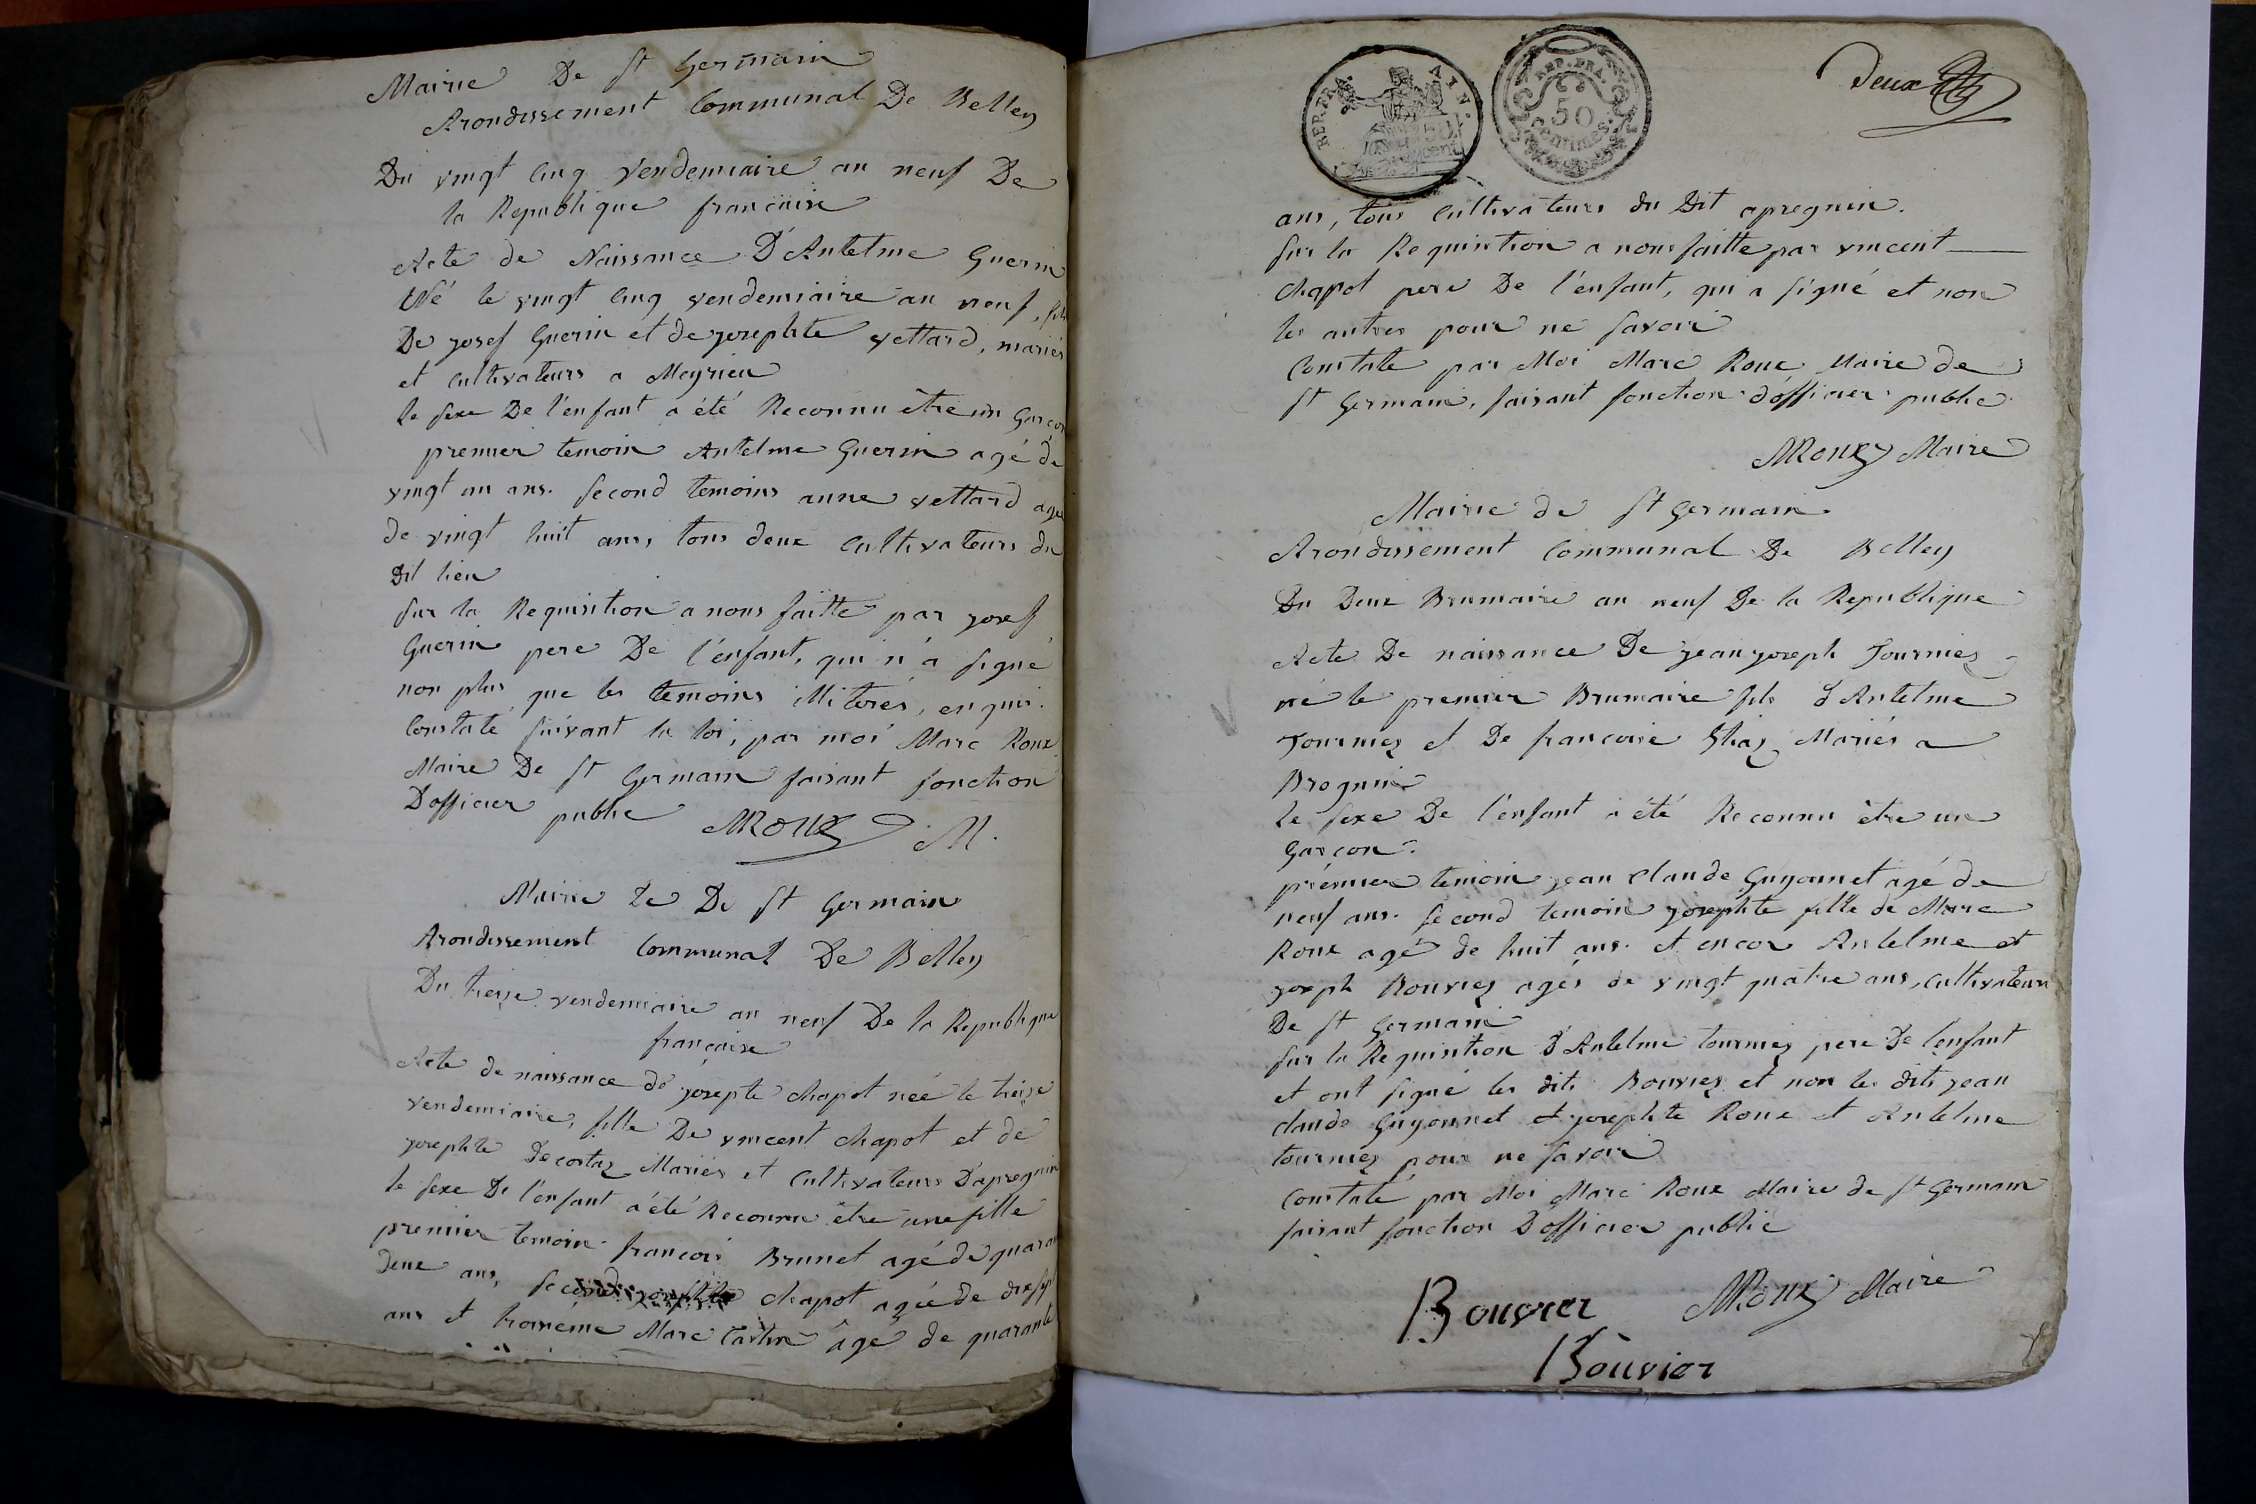 Mairie De St Germain
Arondissement Communal De Belley
Du vingt cinq vendemiaire an neuf De
la Republique francaise
Acte de Naissance D'Antelme Guerin
Né le vingt cinq vendemiaire an neuf, fils
De josef Guerin et de josephte vettard, mariés
et cultivateurs a Meyrieu
le sexe De l'enfant a été Reconnu être un Garcon
premier temoin Antelme Guerin agé de
vingt un ans. second temoins anne vettard agée
de vingt huit ans, tous deux cultivateurs du
Dit lieu
sur la Requisition a nous faitte par josef
Guerin pere De l'enfant, qui n'a signé
non plus que les temoins illiterés, enquis.
Constaté suivant la loi, par moi Marc Roux
Maire De St Germain faisant fonction
D'officier public MRoux M.
Mairie De St Germain
Arondissement Communal De Belley
Du treize vendemiaire an neuf De la Republique
francaise
Acte de naissance de josepte chapot née le treize
vendemiaire, fille De vincent chapot et de
josephte Decostaz Mariés et Cultivateurs D'apregnin
le sexe De l'enfant a été Reconnu être une fille
premier temoin francois Brunet agé de quarante
deux ans, second josephte chapot agée de dix sept
ans et troisiéme Marc agé de quarante
REP. FRA. AIN.
REP. FRA.
50
centimes.
Deux
ans, tous cultivateurs du Dit apregnin.
sur la Requisition a nous faitte par vincent
chapot pere De l'enfant, qui a signé et non
les autres pour ne savoir
Constate par Moi Marc Roux Maire de
St Germain, faisant fonction d'officier public
MRoux Maire
Mairie de St Germain.
Arondissement Communal De Belley
Du Deux Brumaire an neuf De la Republique
Acte De naissance De jean joseph Tourniez
né le premier Brumaire fils d'Antelme
Tourniez et De francoise Mariés a
Brognin
le sexe De l'enfant a été Reconnu être un
Garcon.
prémier temoin jean Claude Guyonnet agé de
neuf ans. second temoin josephte fille de Marc
Roux agé de huit ans. et encor Antelme et
joseph Bouviez agés de vingt quatre ans, cultivateurs
De St Germain
sur la Requisition D'Antelme tourniez pere De l'enfant
et ont signé les dits Bouviez et non les dits jean
claude Guyonnet et josephte Roux et Antelme
tourniez pour ne savoir
Constaté par Moi Marc Roux Maire de St Germain
faisant fonction D'officier public
Bouvier MRoux Maire
Bouvier